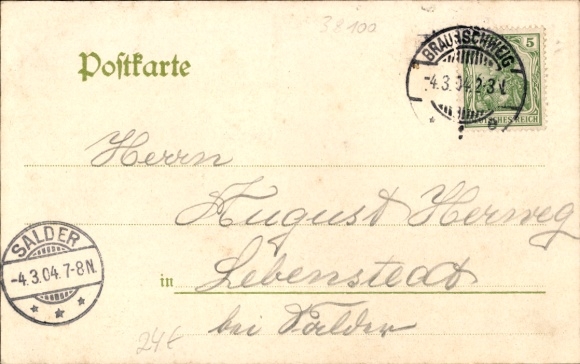 38100
Postkarte
5
BRAUNSCHWEIG
-4.3.04.2-3N.
* e *
REICH
Herrn
August Herweg
in Lebenstedt
bei Salder
SALDER
-4.3.04.7-8N.
* * *
24t